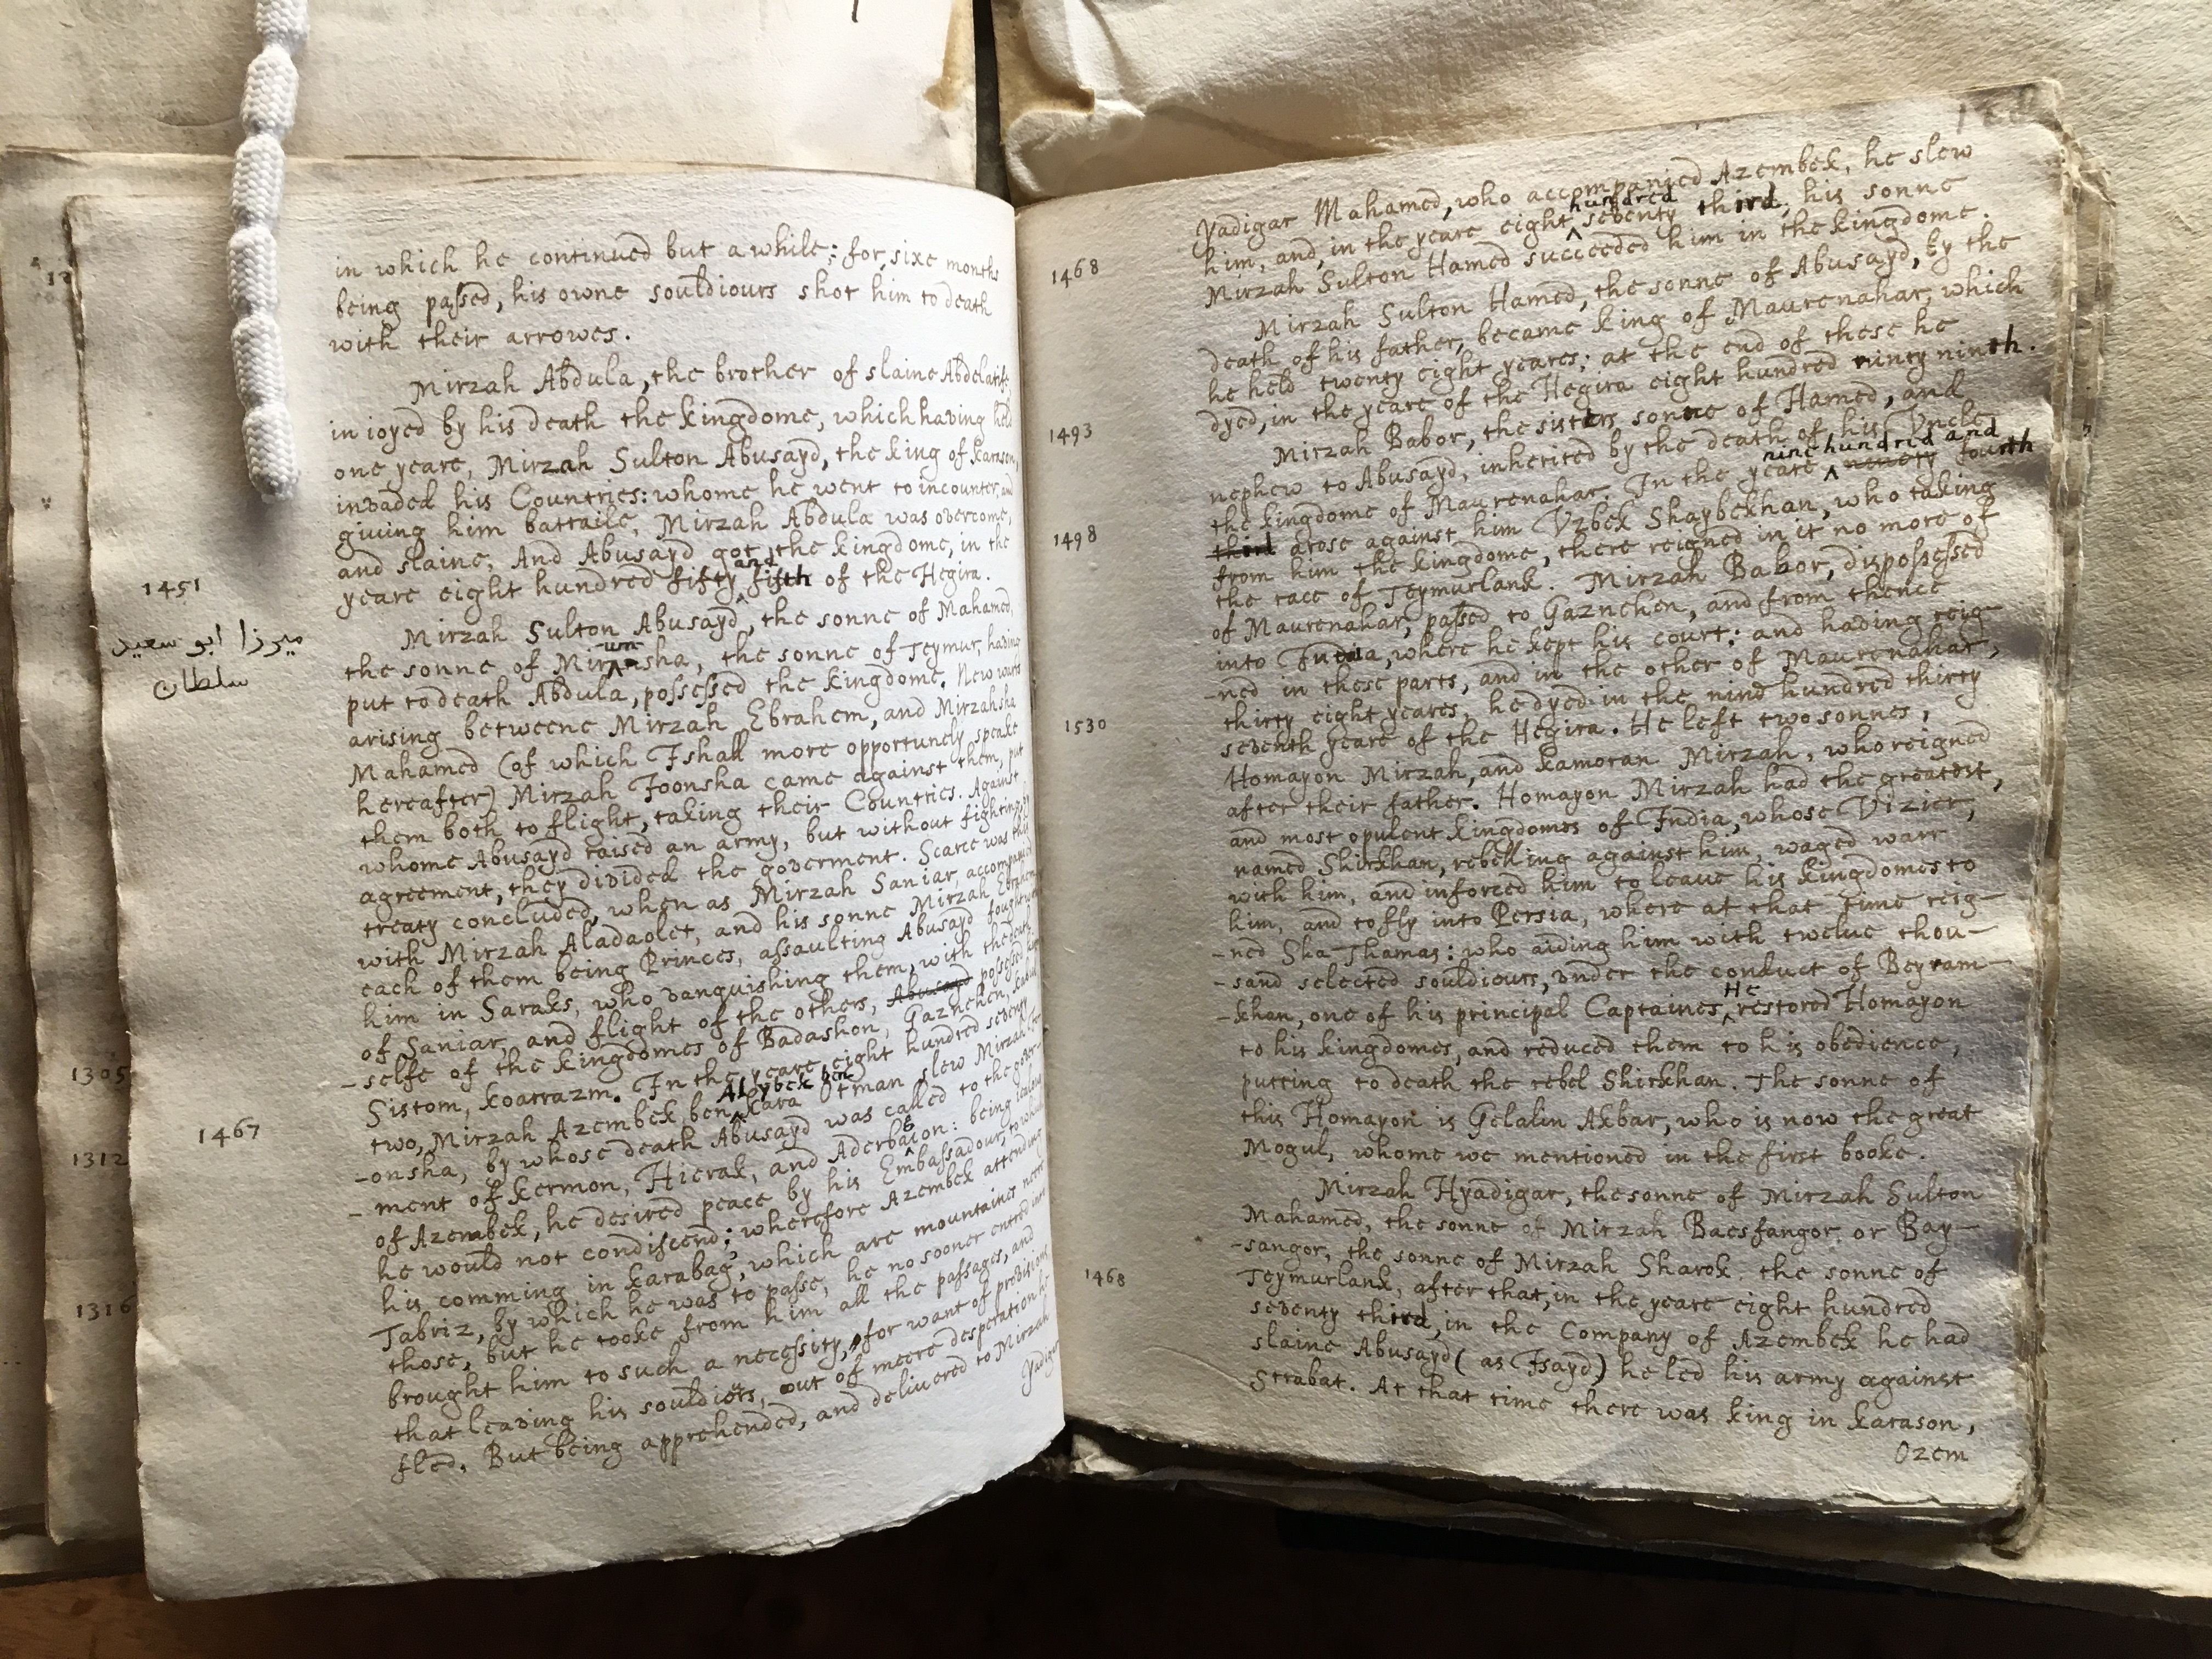 in which he continued but a while; for, sixe months
being passed, his owne souldiours shot him to death
with their arrowes.
Mirzah Abdula, the brother of slaine Abdelatife,
inioyed by his death the kingdome, which having held
one yeare, Mirzah Sulton Abusayd, the king of Karason,
invaded his Countries: whome he went to incounter, and
giuing him battaile, Mirzah Abdula was overcome,
and slaine. And Abusayd got the kingdome, in the
yeare eight hundred fifty and fifth of the Hegira.
1451
ميرزا ابو سعيد
سلطان
Mirzah Sulton Abusayd, the sonne of Mahamed,
the sonne of Mirunsha, the sonne of Teymur, having
put to death Abdula, possessed the kingdome. New warrs
arising betweene Mirzah Ebrahem, and Mirzahsha
Mahamed (of which I shall more opportunely speake
hereafter) Mirzah Joonsha came against them, put
them both to flight, taking their Countries. Against
whome Abusayd raised an army, but without fighting, by
agreement, they divided the goverment. Scarce was this
treaty concluded, when as Mirzah Saniar, accompanied
with Mirzah Aladaolet, and his sonne Mirzah Ebrahem
each of them being Princes, assaulting Abusayd fought with
him in Saraks, who vanquishing them, with the death
of Saniar, and flight of the others, Abusayd possessed
-selfe of the kingdomes of Badashon, Gaznehen,
Sistom, Koarrazm. In the yeare eight hundred seventy
two, Mirzah Azembek ben Alybek ben Kara Otman slew Mirzah
1467
-onsha, by whose death Abusayd was called to the gover-
-ment of Kermon, Hierak, and Aderbagion: being
of Azembek, he desired peace by his Embassadour, to
he would not condiscend; wherefore Azembek attending
his comming in Karabag, which are mountaines neere
Tabriz, by which he was to passe, he no sooner entred into
those, but he tooke from him all the passages, and
brought him to such a necessity, for want of provisions
that leaving his souldiors, out of meere desperation he
fled. But being apprehended, and delivered to Mirzah
Yadigar
1305
1312
1316
Yadigar Mahamed, who accompanied Azembek, he slew
him, and, in the yeare eight hundred seventy third, his sonne
1468
Mirzah Sulton Hamed succeeded him in the kingdome.
Mirzah Sulton Hamed, the sonne of Abusayd, by the
death of his father, became king of Maurenahar, which
he held twenty eight yeares; at the end of these he
dyed, in the yeare of the Hegira eight hundred ninty ninth.
1493
Mirzah Babor, the sisters sonne of Hamed, and
nephew to Abusayd, inherited by the death of his Vncle
the kingdome of Maurenahar. In the yeare nine hundred and ninety fourth
1498
third arose against him Vzbek Shaybekhan, who taking
from him the kingdome, there reigned in it no more of
the race of Teymurlank. Mirzah Babor, dispossessed
of Maurenahar, passed to Gaznehen, and from thence
into India, where he kept his court: and having reig-
-ned in these parts, and in the other of Maurenahar,
thirty eight yeares, he dyed in the nine hundred thirty
1530
seventh yeare of the Hegira. He left two sonnes,
Homayon Mirzah, and Kamoran Mirzah, who reigned
after their father. Homayon Mirzah had the greatest,
and most opulent kingdomes of India, whose Vizier,
named Shirkhan, rebelling against him, waged warr
with him, and inforced him to leaue his kingdomes to
him, and to fly into Persia, where at that time reig-
-ned Sha Thamas: who aiding him with twelue thou-
-sand selected souldiours, vnder the conduct of Beyram-
-khan, one of his principal Captaines, He restored Homayon
to his kingdomes, and reduced them to his obedience,
putting to death the rebel Shirkhan. The sonne of
this Homayon is Gelalin Akbar, who is now the great
Mogul, whome we mentioned in the first booke.
Mirzah Hyadigar, the sonne of Mirzah Sulton
Mahamed, the sonne of Mirzah Baesfangor, or Bay-
-sangor, the sonne of Mirzah Sharok, the sonne of
1468
Teymurlank, after that, in the yeare eight hundred
seventy third, in the Company of Azembek he had
slaine Abusayd (as I sayd) he led his army against
Strabat. At that time there was king in Karason,
Ozem